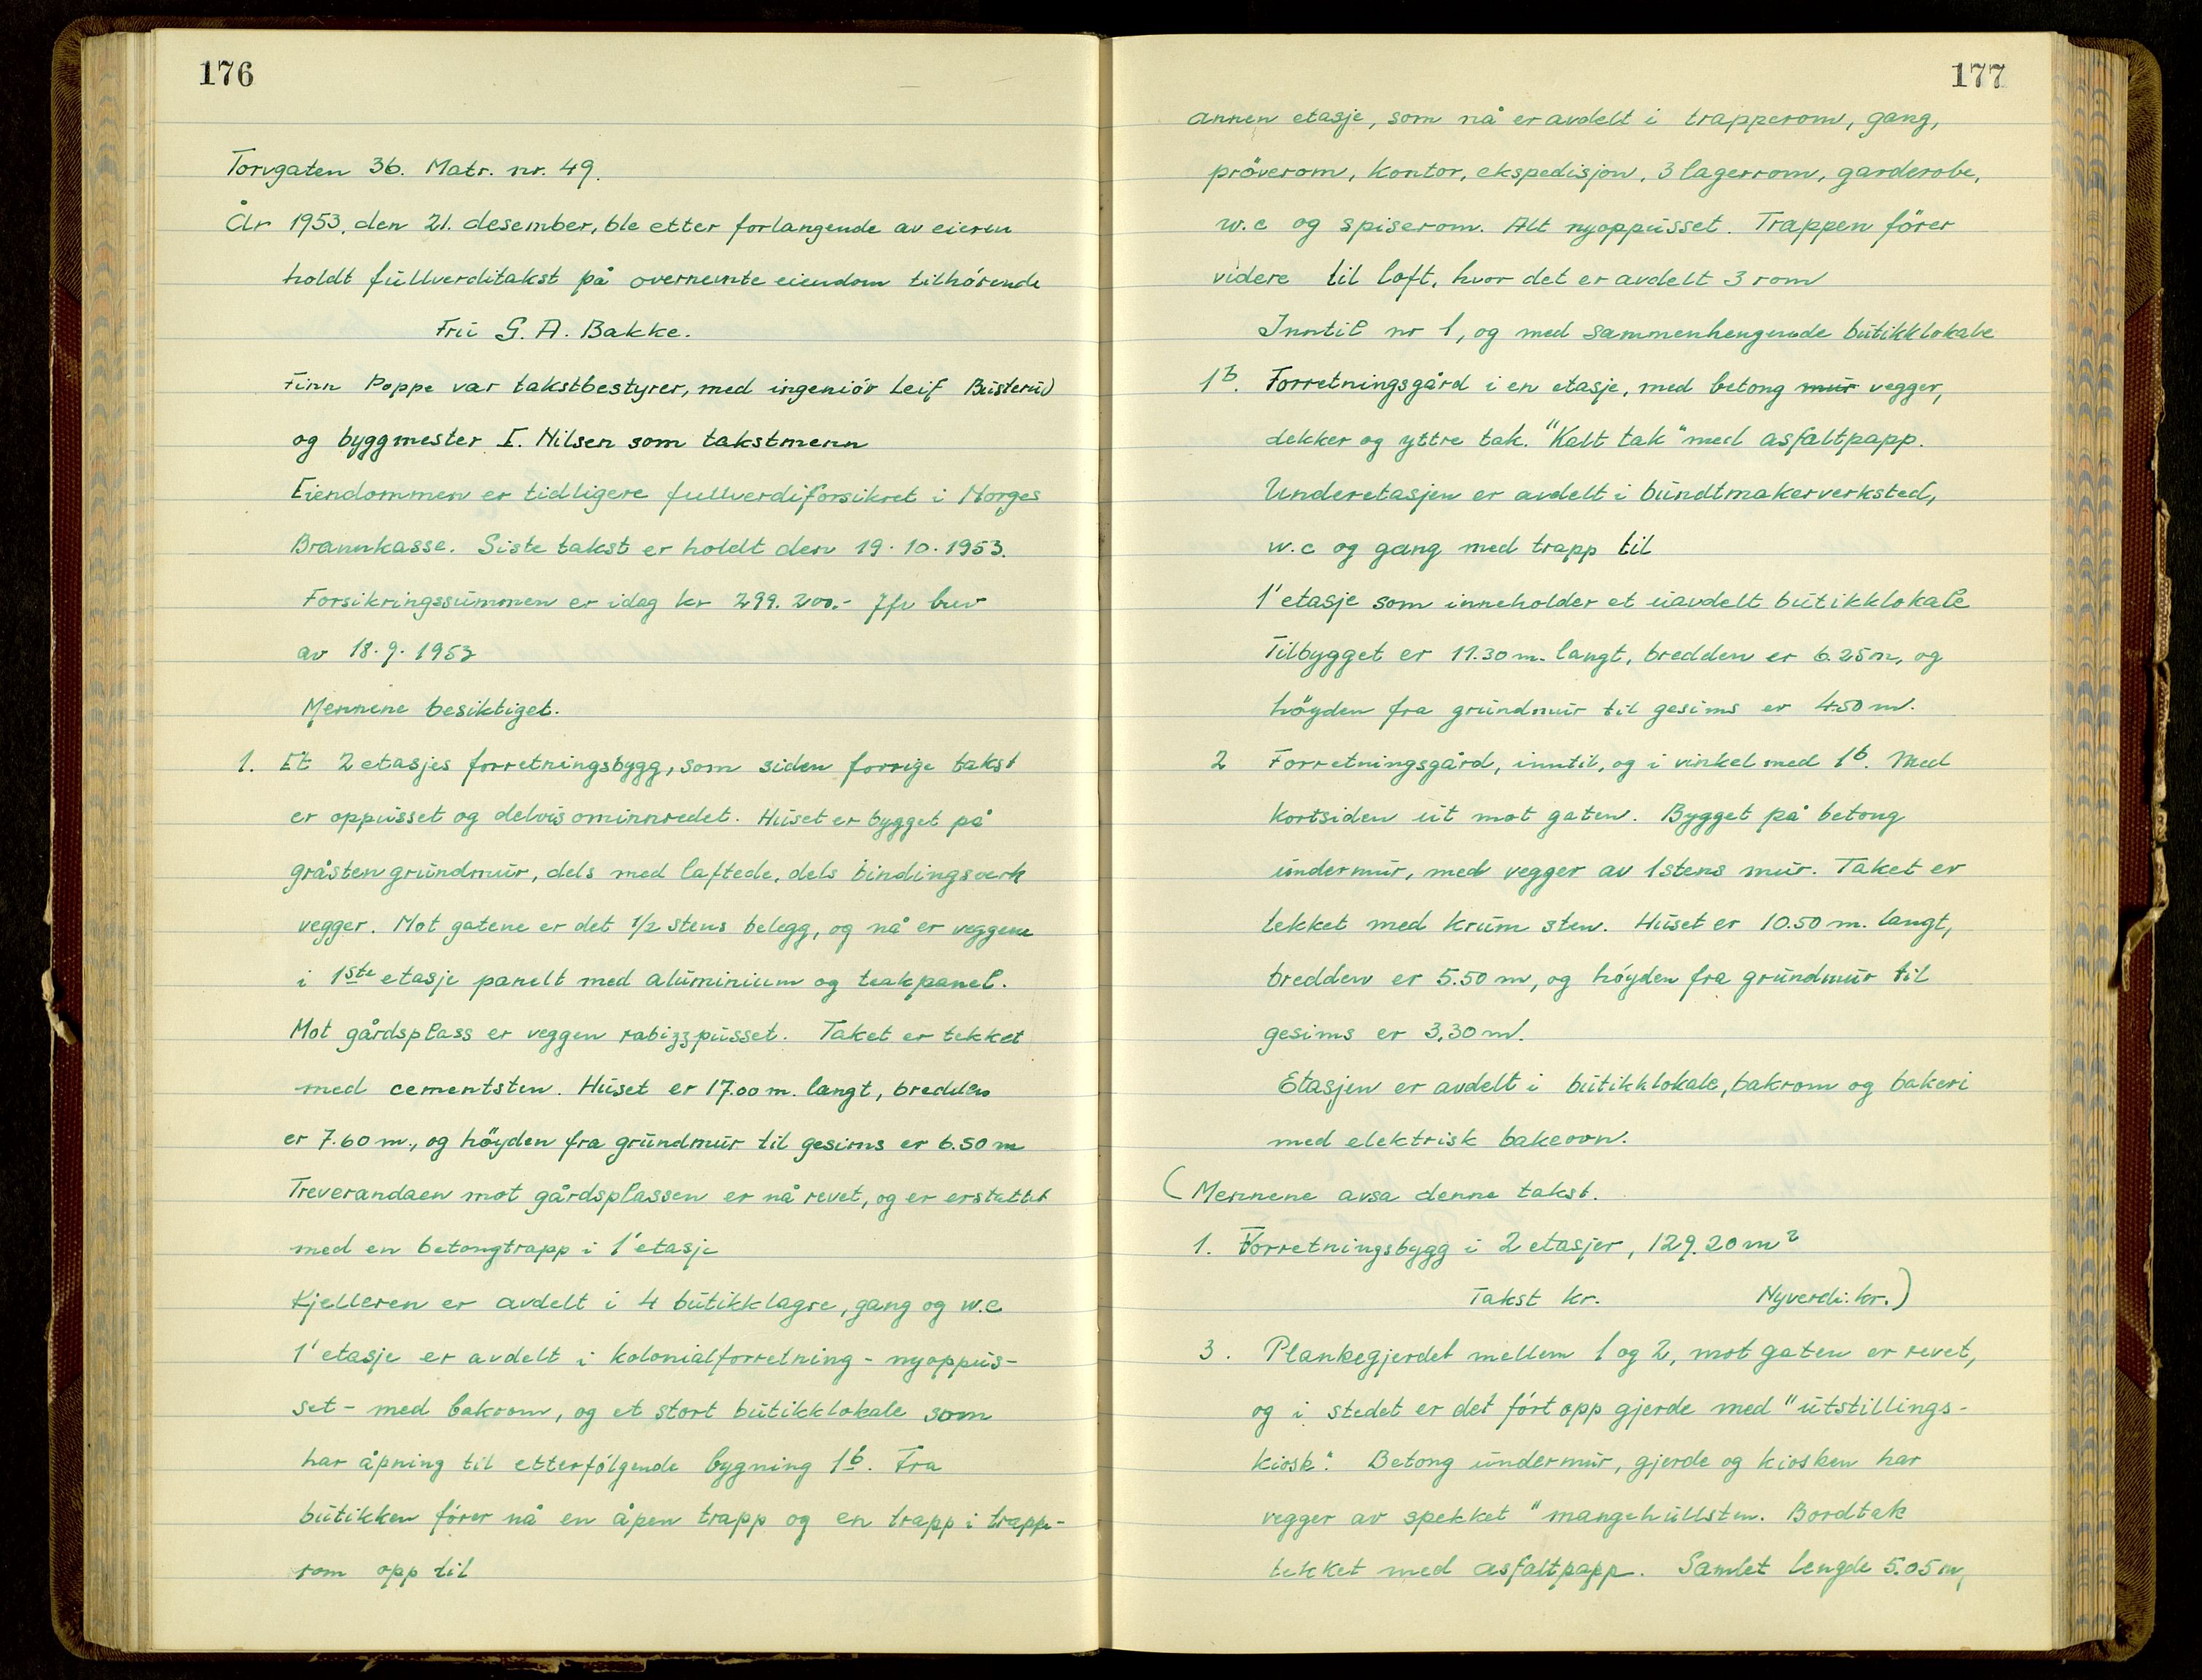 176
Torvgaten 36. Matr. nr. 49.
År 1953, den 21. desember, ble etter forlangende av eieren
holdt fullverditakst på overnevnte eiendom tilhörende
Fru G. A. Bakke.
Finn Poppe var takstbestyrer, med ingeniör Leif Busterud
og byggmester I. Nilsen som takstmenn
Eiendommen er tidligere fullverdiforsikret i Norges
Brannkasse. Siste takst er holdt den 19.10.1953.
Forsikringssummen er idag kr 299.200.- Jfr brev
av 18.9.1953
Mennene besiktiget.
1. Et 2 etasjes forretningsbygg, som siden forrige takst
er oppusset og delvis ominnredet. Huset er bygget på
gråsten grundmur, dels med laftede, dels bindingsverk
vegger. Mot gatene er det 1/2 stens belegg, og nå er veggene
i 1ste etasje panelt med aluminium og teakpanel.
Mot gårdsplass er veggen rabizzpusset. Taket er tekket
med cementsten. Huset er 17.00 m. langt, bredden
er 7.60 m., og höyden fra grundmur til gesims er 6.50 m
Treverandaen mot gårdsplassen er nå revet, og er erstattet
med en betongtrapp i 1' etasje
Kjelleren er avdelt i 4 butikklagre, gang og w.c
1' etasje er avdelt i kolonialforretning - nyoppus-
set - med bakrom, og et stort butikklokale som
har åpning til etterfölgende bygning 1b. Fra
butikken förer nå en åpen trapp og en trapp i trappe-
rom opp til
177
annen etasje, som nå er avdelt i trapperom, gang,
pröverom, kontor, ekspedisjon, 3 lagerrom, garderobe,
w.c og spiserom. Alt nyoppusset. Trappen förer
videre til loft, hvor det er avdelt 3 rom
Inntil nr 1, og med sammenhengende butikklokale
1b. Forretningsgård i en etasje, med betong mur vegger,
dekker og yttre tak. "Kalt tak" med asfaltpapp.
Underetasjen er avdelt i bundtmakerverksted,
w.c og gang med trapp til
1' etasje som inneholder et uavdelt butikklokale
Tilbygget er 11.30 m. langt, bredden er 6.25 m, og
höyden fra grundmur til gesims er 4.50 m.
2 Forretningsgård, inntil, og i vinkel med 1b. Med
kortsiden ut mot gaten. Bygget på betong
undermur, med vegger av 1 stens mur. Taket er
tekket med krum sten. Huset er 10.50 m. langt,
bredden er 5.50 m, og höyden fra grundmur til
gesims er 3,30 m.
Etasjen er avdelt i butikklokale, bakrom og bakeri
med elektrisk bakeovn.
(Mennene avsa denne takst.
1. Forretningsbygg i 2 etasjer, 129.20 m2
Takst kr. Nyverdi: kr.)
3. Plankegjerdet mellem 1 og 2, mot gaten er revet,
og i stedet er det fört opp gjerde med "utstillings-
kiosk". Betong undermur, gjerde og kiosken har
vegger av spekket "mangehullsten. Bordtak
tekket med asfaltpapp. Samlet lengde 5.05 m,